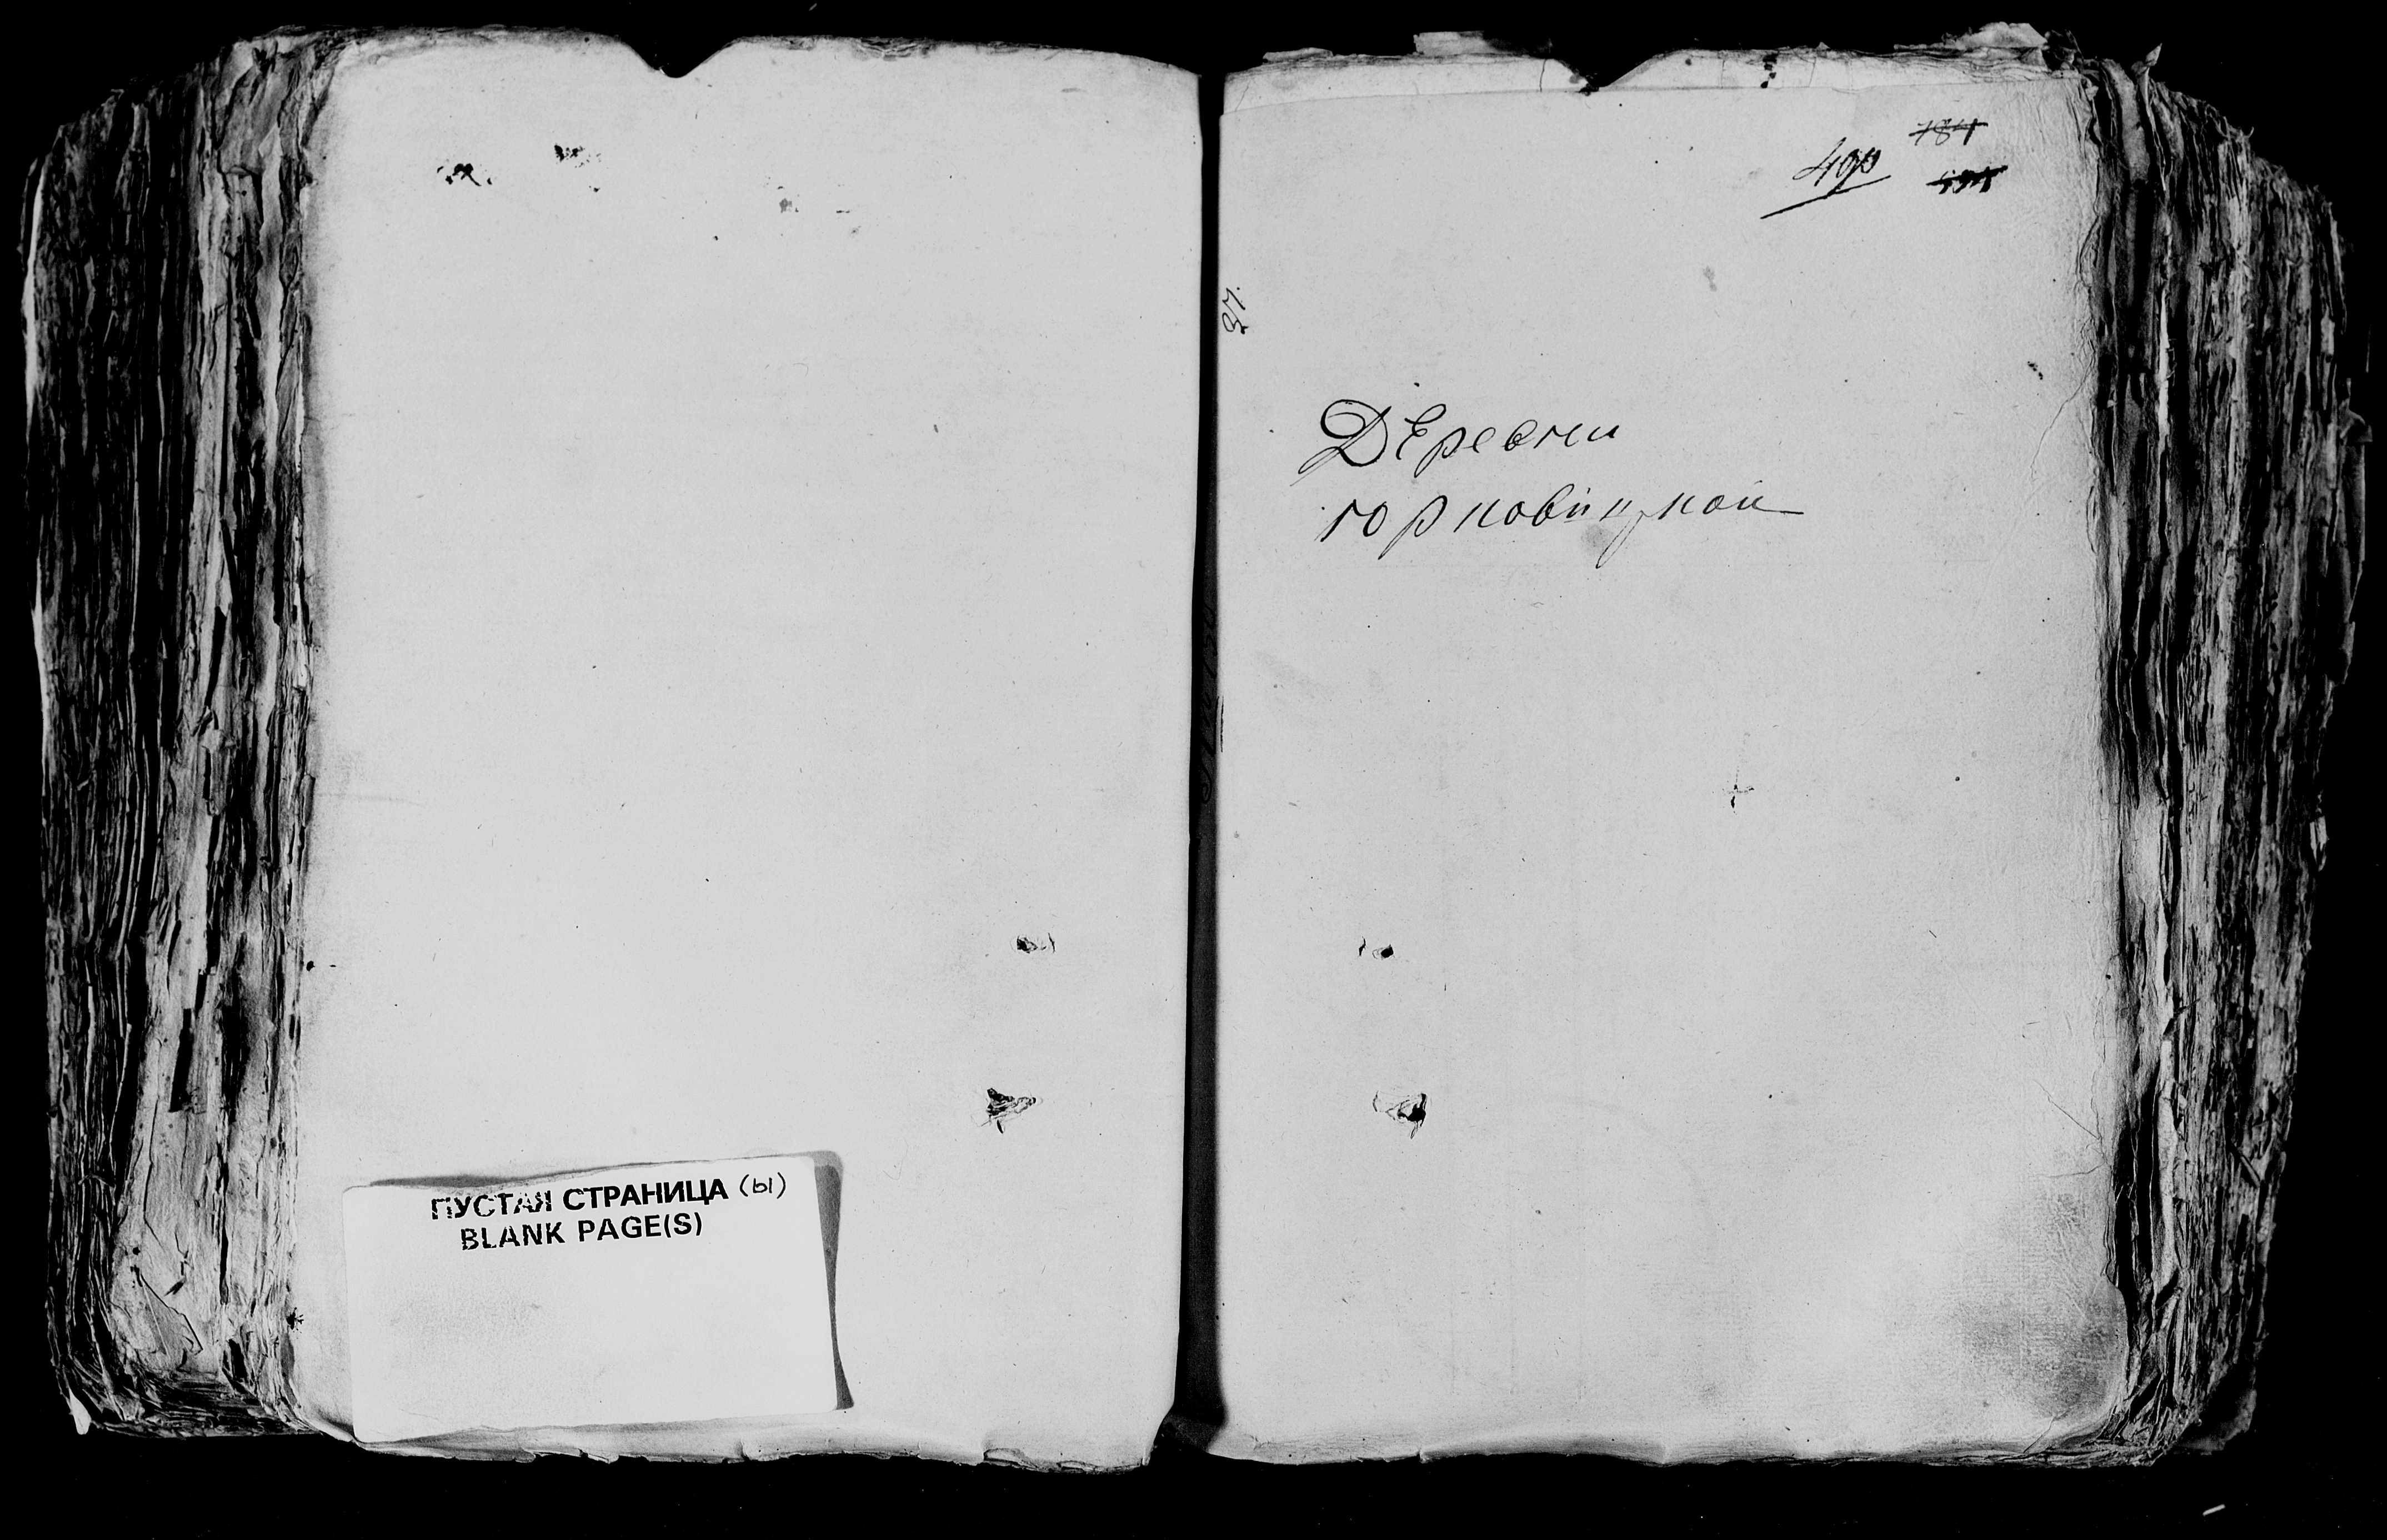 ПУСТАЯ СТРАНИЦА (Ы)
BLANK PAGE(S)
490
784
27.
Деревни
горковицкой